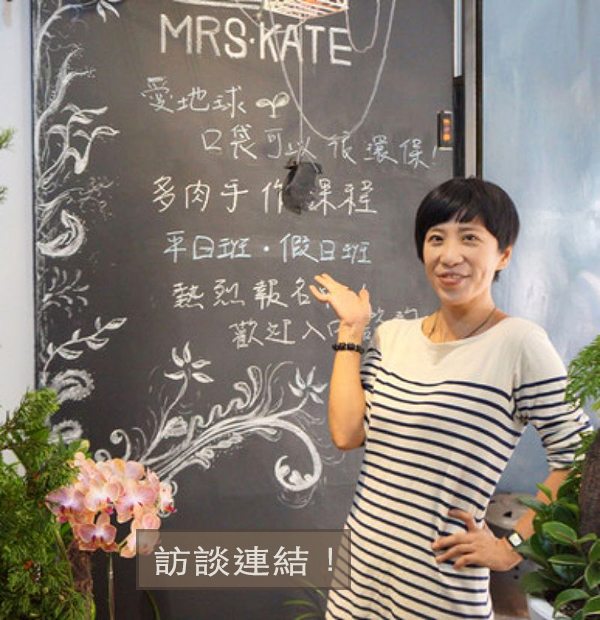 MRS·KATE
愛地球
口袋可以很環保!
多肉手作課程
平日班·假日班
熱烈報名中!
歡迎入內
訪談連結!